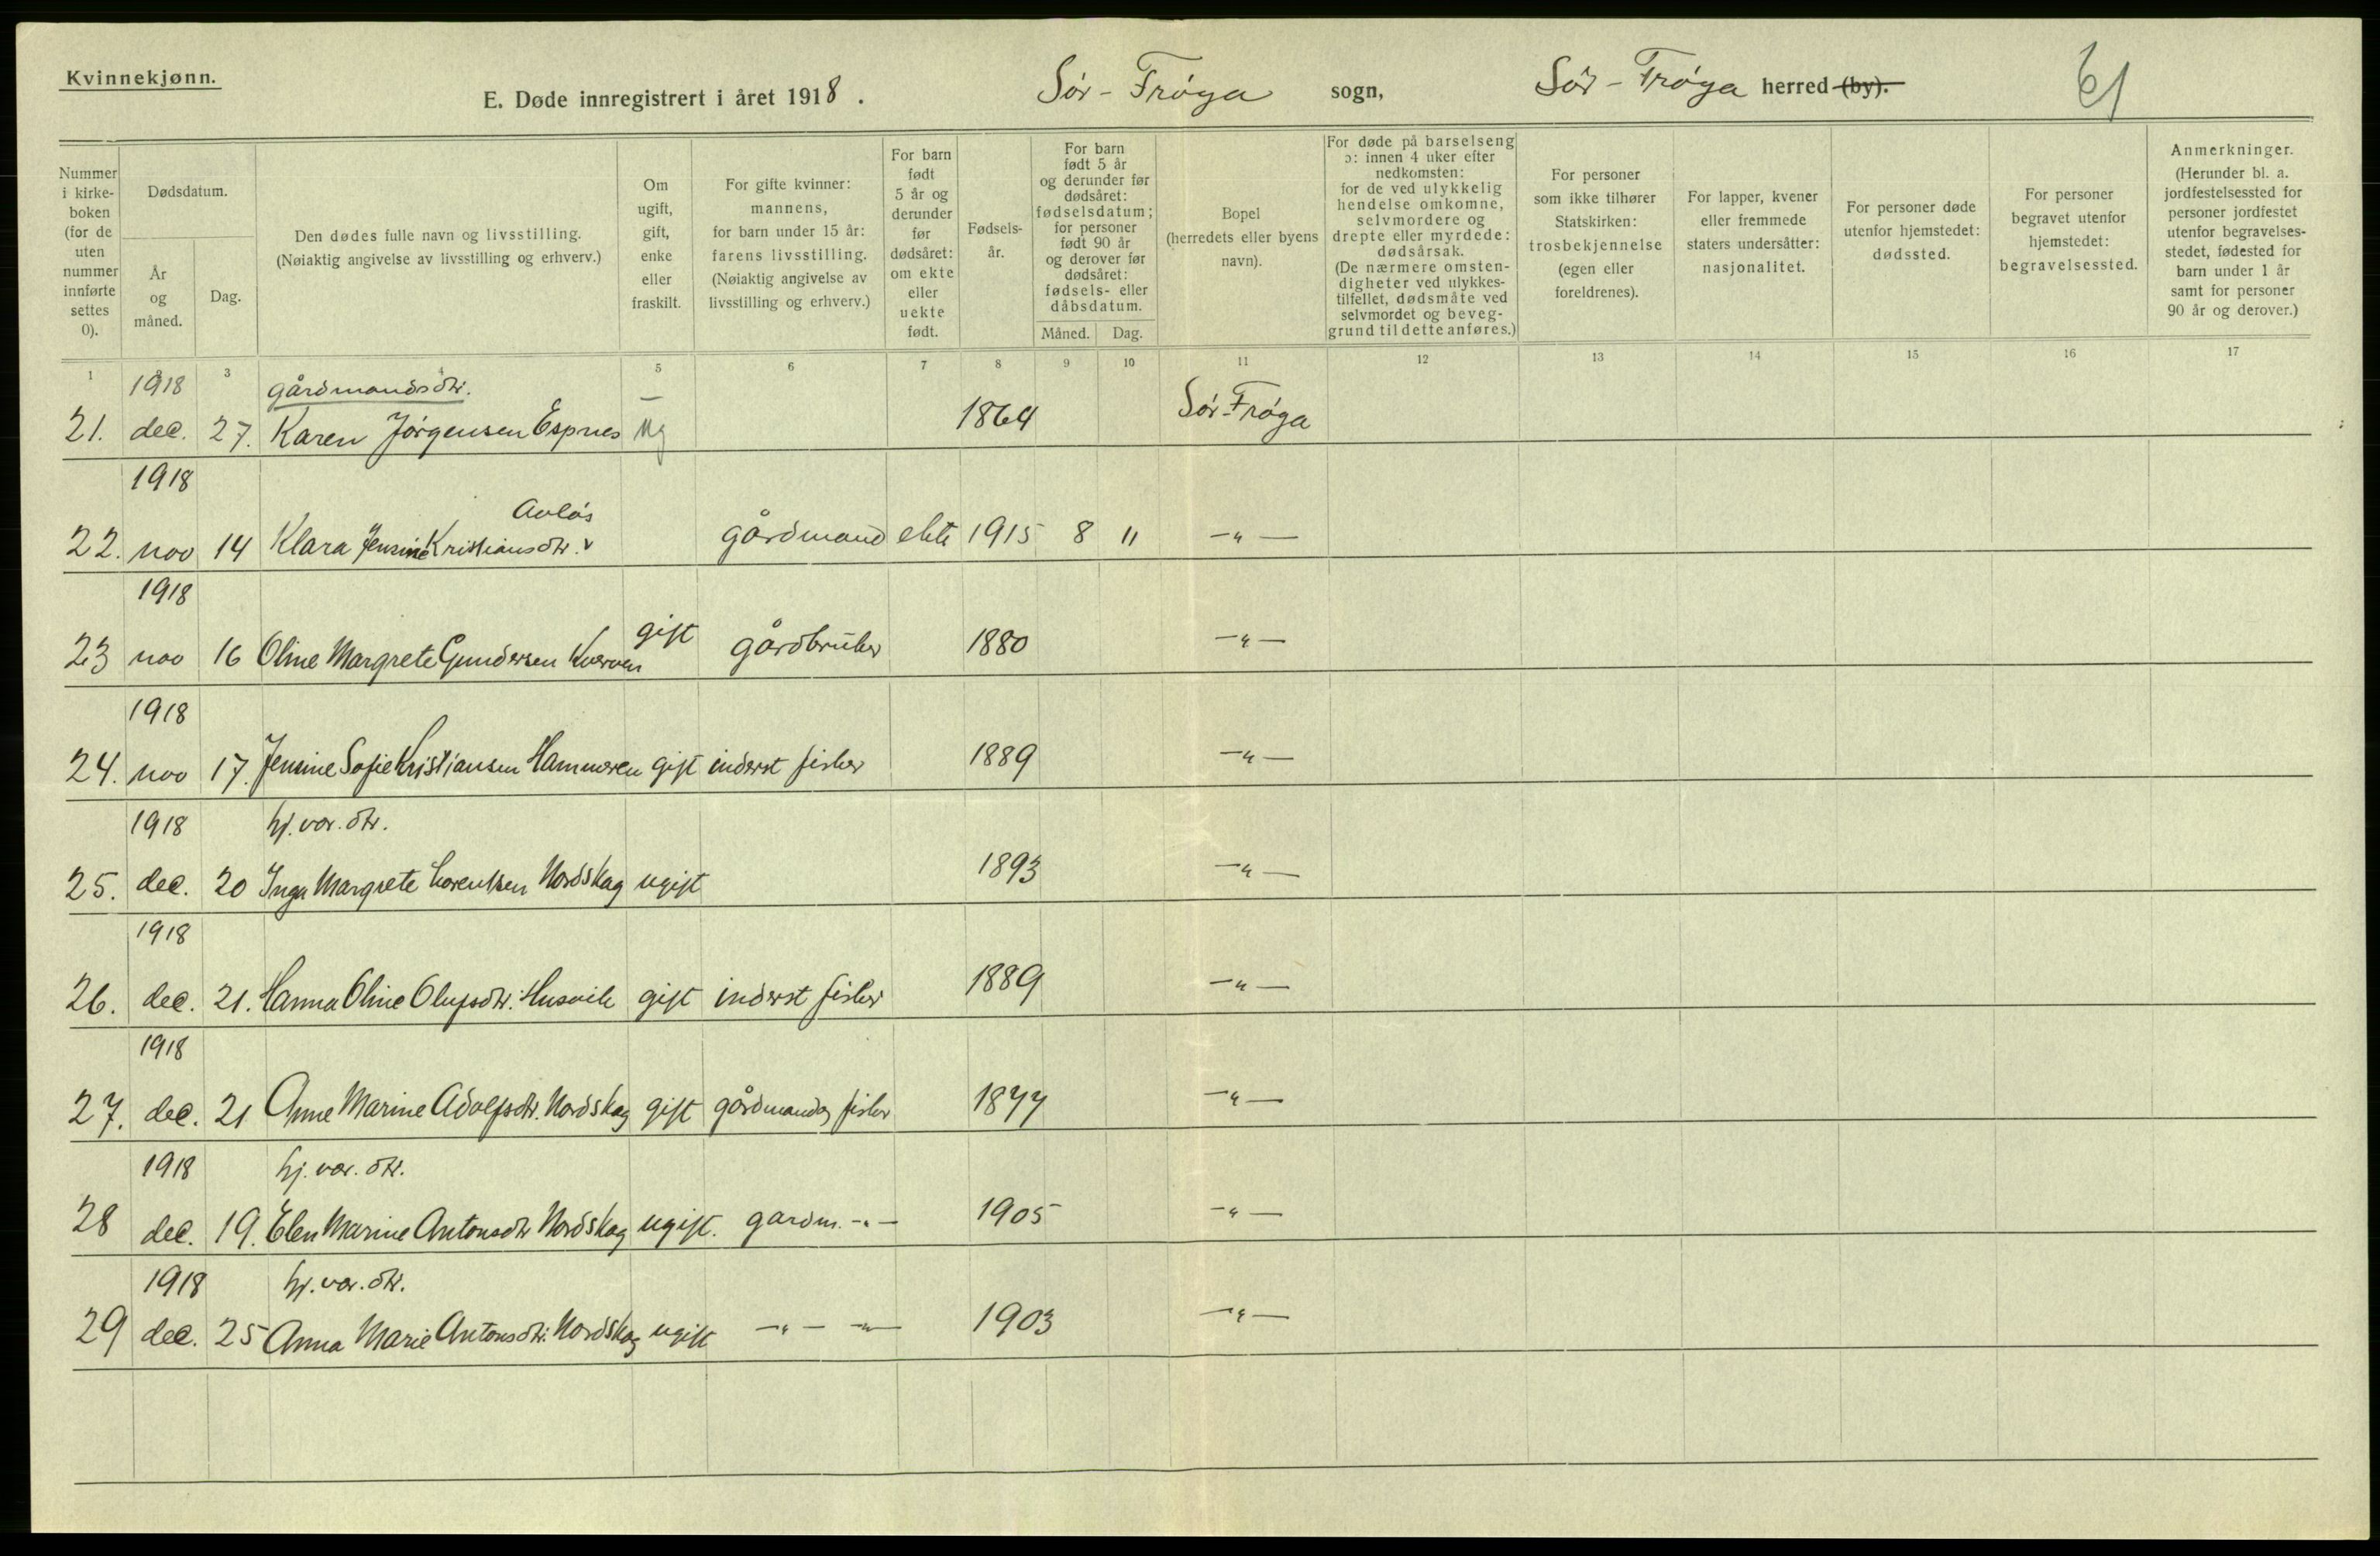 Kvinnekjønn.
E. Døde innregistrert i året 1918. Sör-Fröya sogn, Sör-Fröya herred (by). 61
Nummer i kirke-boken (for de uten nummer innførte settes 0).
Dødsdatum.
År og måned.
Dag.
Den dødes fulle navn og livsstilling. (Nøiaktig angivelse av livsstilling og erhverv.)
Om ugift, gift, enke eller fraskilt.
For gifte kvinner: mannens, for barn under 15 år: farens livsstilling. (Nøiaktig angivelse av livsstilling og erhverv.)
For barn født 5 år og derunder før dødsåret: om ekte eller uekte født.
Fødsels-år.
For barn født 5 år og derunder før dødsåret: fødselsdatum; for personer født 90 år og derover før dødsåret: fødsels- eller dåbsdatum.
Måned. Dag.
Bopel (herredets eller byens navn).
For døde på barselseng ɔ: innen 4 uker efter nedkomsten: for de ved ulykkelig hendelse omkomne, selvmordere og drepte eller myrdede: dødsårsak. (De nærmere omsten-digheter ved ulykkes-tilfellet, dødsmåte ved selvmordet og beveg-grund til dette anføres.)
For personer som ikke tilhører Statskirken: trosbekjennelse (egen eller foreldrenes).
For lapper, kvener eller fremmede staters undersåtter: nasjonalitet.
For personer døde utenfor hjemstedet: dødssted.
For personer begravet utenfor hjemstedet: begravelsessted.
Anmerkninger. (Herunder bl. a. jordfestelsessted for personer jordfestet utenfor begravelses-stedet, fødested for barn under 1 år samt for personer 90 år og derover.)
1 2 3 4 5 6 7 8 9 10 11 12 13 14 15 16 17
1918 gårdmandsdtr. —
21. dec. 27. Karen Jörgensen Espnes ug 1864 Sör-Fröya
1918 Avløs
22. nov 14 Klara Jensine Kristiansdtr. v gårdmand ekte 1915 8 11 -"-
1918
23 nov 16 Oline Margrete Gundersen Kverven gift gårdbruker 1880 -"-
1918
24. nov 17. Jensine Sofie Kristiansen Hammeren gift inderst fisker 1889 -"-
1918 hj.vær.dtr.
25. dec. 20 Inga Margrete Lorentsen Nordskag ugift 1893 -"-
1918
26. dec. 21. Hanna Oline Olufsdtr. Husvik gift inderst fisker 1889 -"-
1918
27. dec. 21 Anne Marine Adolfsdtr. Nordskag gift gårdmand og fisker 1877 -"-
1918 hj.vær.dtr.
28 dec. 19. Elen Marine Antonsdtr Nordskag ugift. gardm. -"- 1905 -"-
1918 hj.vær.dtr.
29 dec. 25 Anna Marie Antonsdtr. Nordskag ugift -"- -"- 1903 -"-